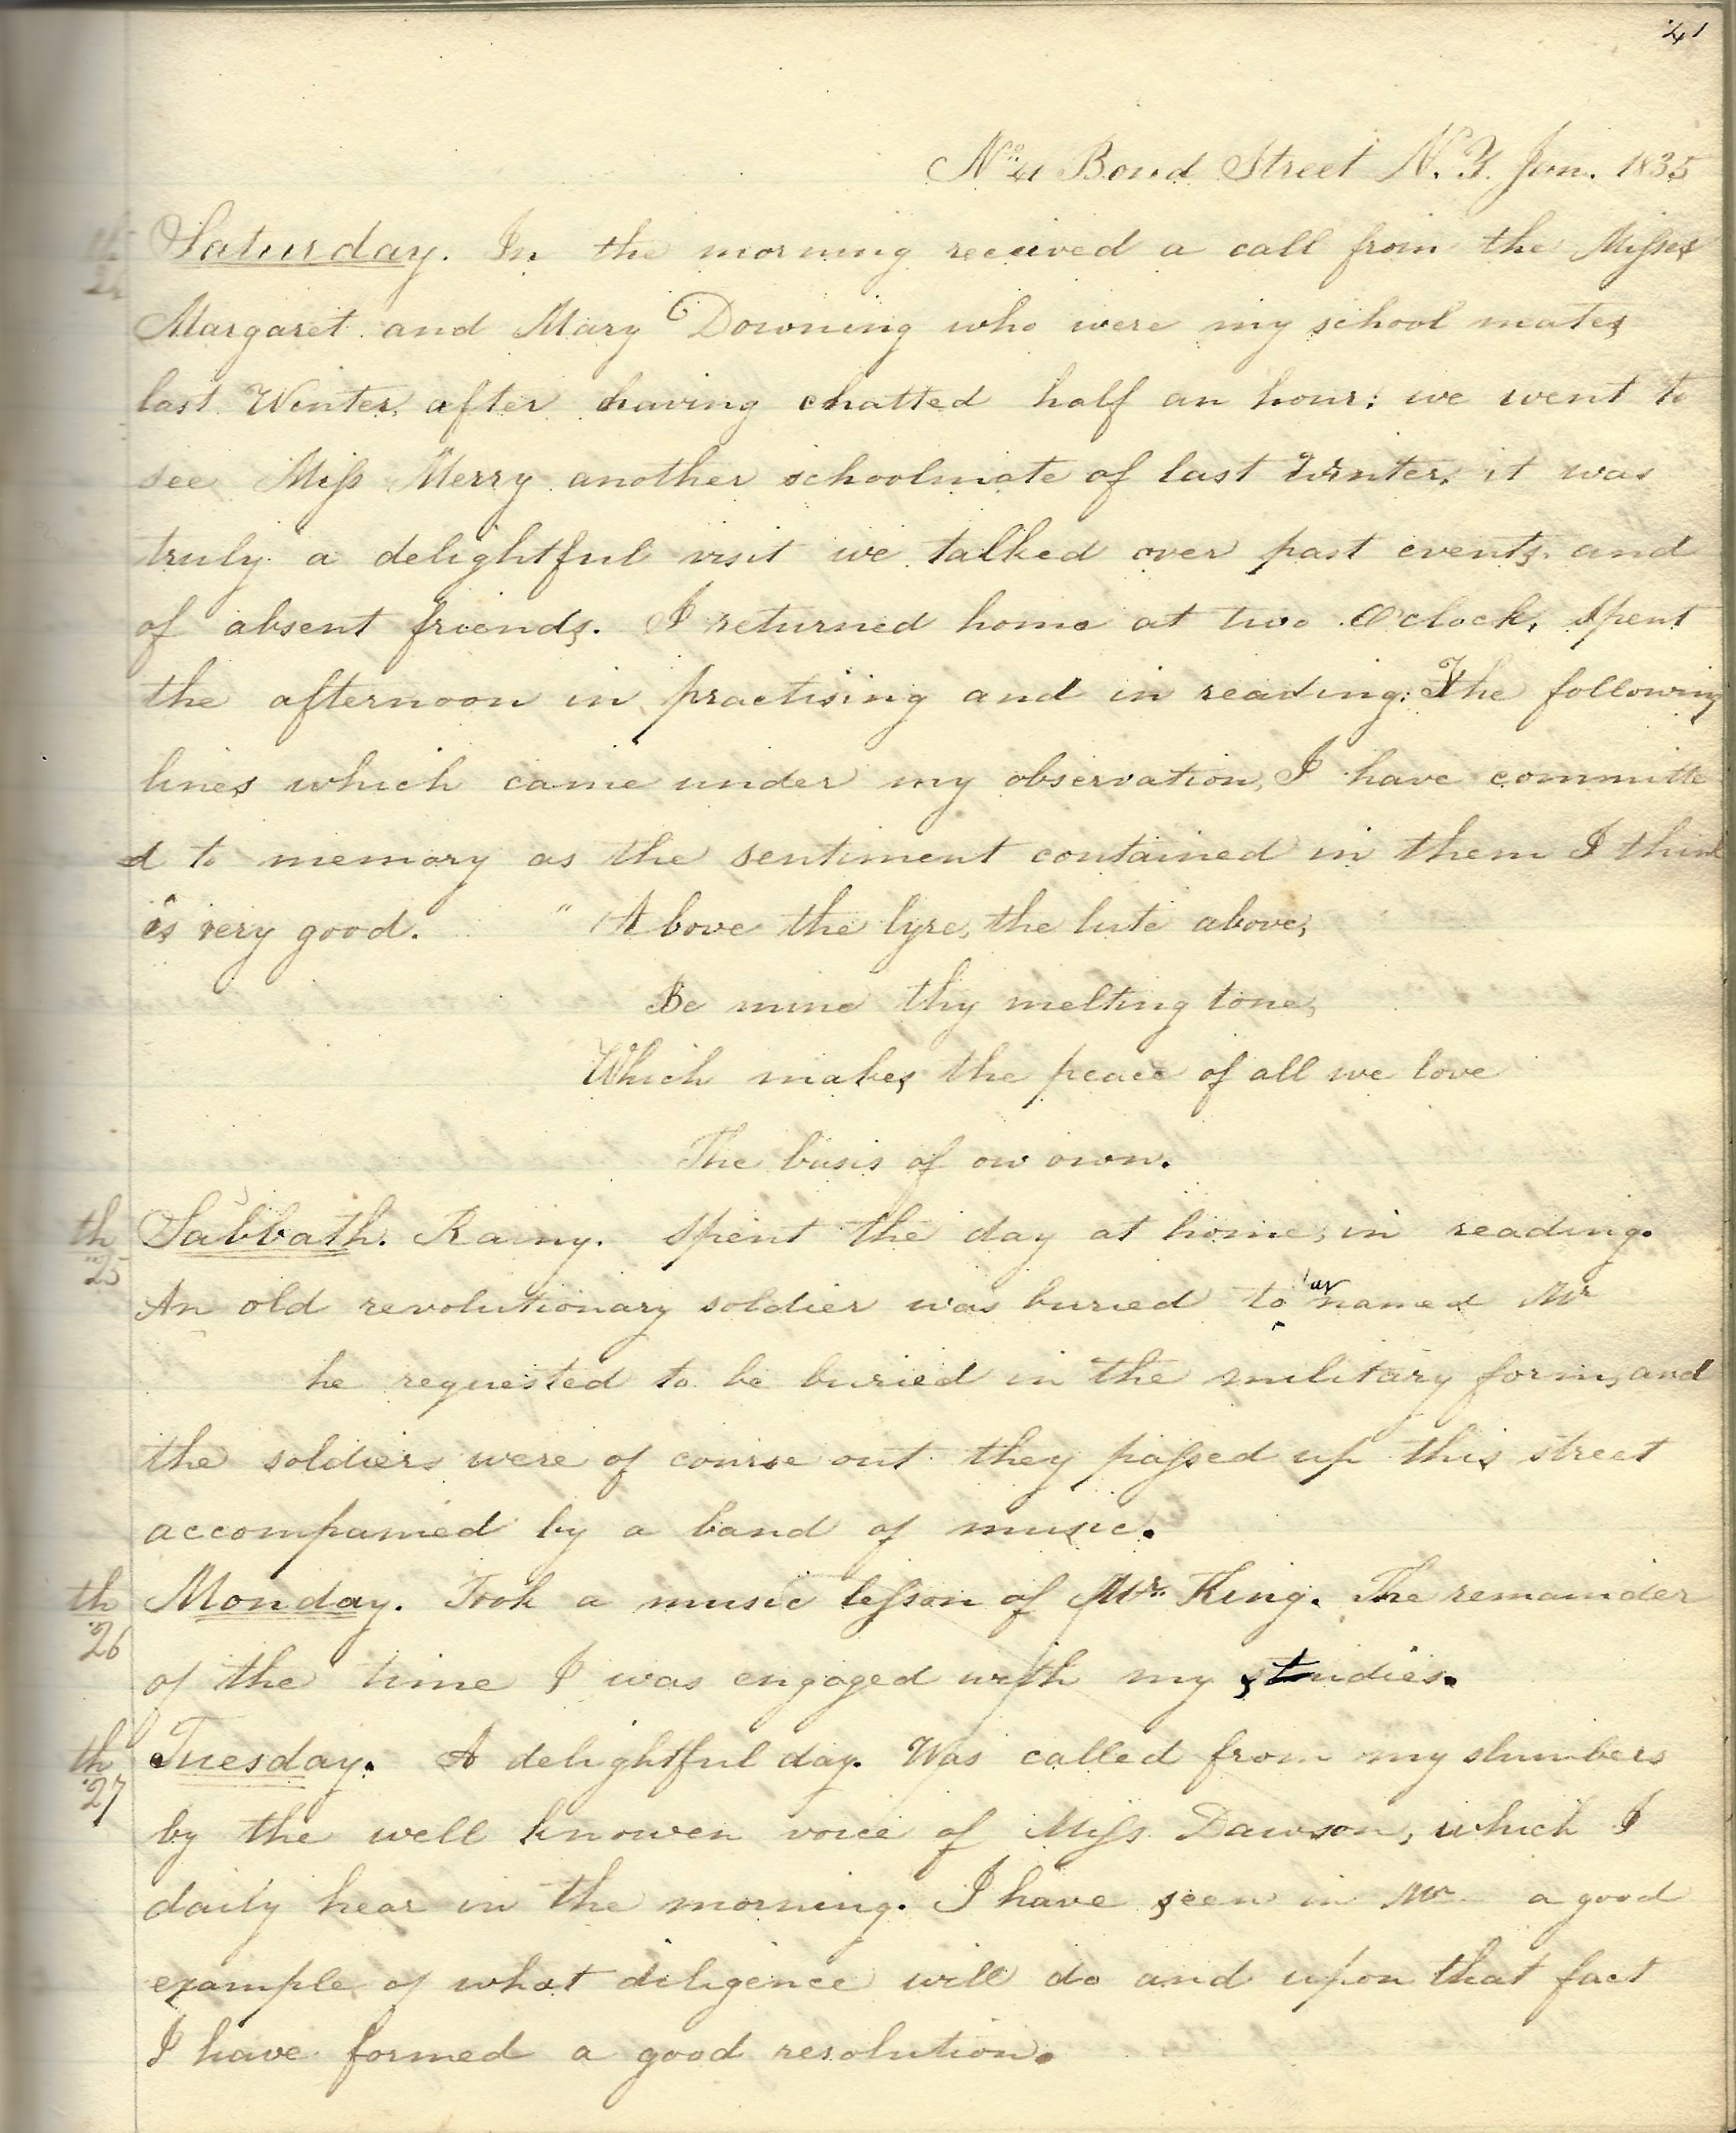 41
No 41 Bond Street N.Y. Jan. 1835
th
24
Saturday. In the morning received a call from the Misses
Margaret and Mary Downing who were my school mates
last Winter, after having chatted half an hour; we went to
see Miss Merry another schoolmate of last Winter, it was
truly a delightful visit we talked over past events, and
of absent friends. I returned home at two O'clock, spent
the afternoon in practising and in reading; The following
lines which came under my observation, I have committe
d to memory as the sentiment contained in them I think
is very good. " Above the lyre, the lute above,
Be mine thy melting tone,
Which makes the peace of all we love
The basis of our own.
th
25
Sabbath. Rainy. Spent the day at home, in reading.
An old revolutionary soldier was buried to day named Mr
he requested to be buried in the military form, and
the soldiers were of course out they passed up this street
accompanied by a band of music.
th
26
Monday. Took a music lesson of Mr. King. The remainder
of the time I was engaged with my studies.
th
27
Tuesday. A delightful day. Was called from my slumbers
by the well knowen voice of Miss Dawson, which I
daily hear in the morning. I have seen in Mr a good
example of what diligence will do and upon that fact
I have formed a good resolution.